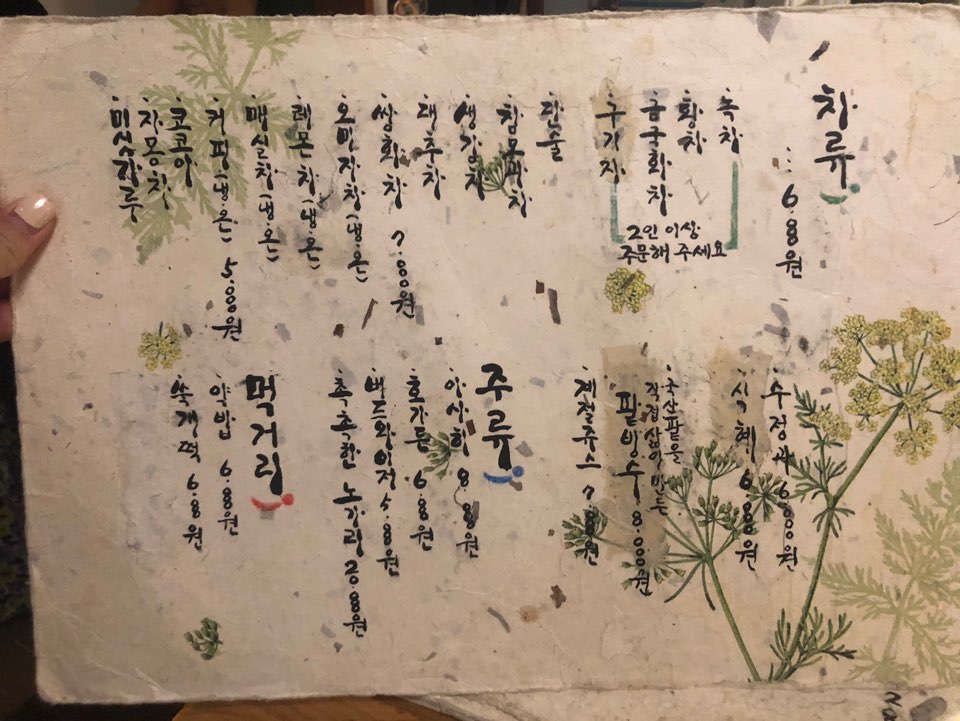 차류
... 6.000원
녹차
황차
금국화차
구기자
2인 이상
주문해 주세요
단술
참모과차
생강차
대추차
쌍화차 7.000원
오미자차(냉.온)
레몬차(냉.온)
매실차(냉.온)
커피(냉.온) 5.000원
코코아
자몽차
미싯가루
수정과 6.000원
식혜 6.000원
국산팥을
직접삶아 만드는
팥빙수 8.000원
계절쥬스 7.000원
주류
아사히 8.000원
호가든 6.000원
버드와이저 5.000원
촉촉한 노가리 20.000원
먹거리
약밥 6.000원
쑥개떡 6.000원